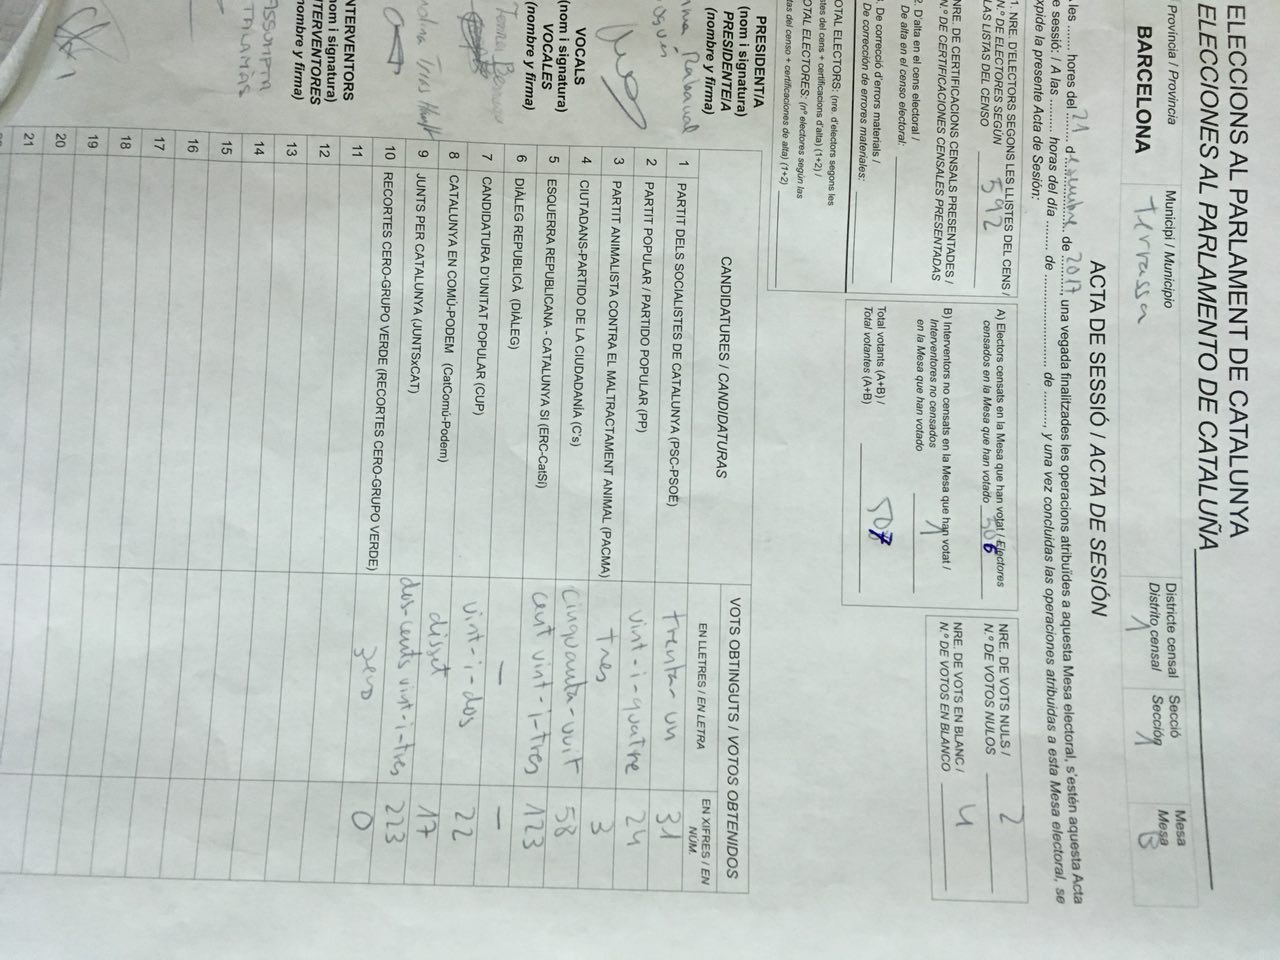 ELECCIONS AL PARLAMENT DE CATALUNYA
ELECCIONES AL PARLAMENTO DE CATALUÑA
Província / Provincia
BARCELONA
Municipi / Municipio
Terrassa
Districte censal
Distrito censal
1
Secció
Sección
1
Mesa
Mesa
B
ACTA DE SESSIÓ / ACTA DE SESIÓN
les ........ hores del 21 desembre de 2017, una vegada finalitzades les operacions atribuïdes a aquesta Mesa electoral, s'estén aquesta Acta
e sessió: / A las ......... horas del día ........ de ........................ de ........., y una vez concluidas las operaciones atribuidas a esta Mesa electoral, se
xpide la presente Acta de Sesión:
1. NRE. D'ELECTORS SEGONS LES LLISTES DEL CENS /
N.º DE ELECTORES SEGÚN
LAS LISTAS DEL CENSO
592
NRE. DE CERTIFICACIONS CENSALS PRESENTADES /
N.º DE CERTIFICACIONES CENSALES PRESENTADAS
2. D'alta en el cens electoral /
De alta en el censo electoral:
. De correcció d'errors materials /
De corrección de errores materiales:
OTAL ELECTORS: (nre. d'electors segons les
stes del cens + certificacions d'alta) (1+2) /
OTAL ELECTORES: (nº electores según las
tas del censo + certificaciones de alta) (1+2)
A) Electors censats en la Mesa que han votat / Electores
censados en la Mesa que han votado
506
B) Interventors no censats en la Mesa que han votat /
Interventores no censados
en la Mesa que han votado
1
Total votants (A+B) /
Total votantes (A+B)
507
NRE. DE VOTS NULS /
N.º DE VOTOS NULOS
2
NRE. DE VOTS EN BLANC /
N.º DE VOTOS EN BLANCO
4
CANDIDATURES / CANDIDATURAS
VOTS OBTINGUTS / VOTOS OBTENIDOS
EN LLETRES / EN LETRA
EN XIFRES / EN NÚM.
1 PARTIT DELS SOCIALISTES DE CATALUNYA (PSC-PSOE) trenta-un 31
2 PARTIT POPULAR / PARTIDO POPULAR (PP) vint-i-quatre 24
3 PARTIT ANIMALISTA CONTRA EL MALTRACTAMENT ANIMAL (PACMA) tres 3
4 CIUTADANS-PARTIDO DE LA CIUDADANÍA (C's) cinquanta-vuit 58
5 ESQUERRA REPUBLICANA - CATALUNYA SI (ERC-CatSI) cent vint-i-tres 123
6 DIÀLEG REPUBLICÀ (DIÀLEG) — —
7 CANDIDATURA D'UNITAT POPULAR (CUP) vint-i-dos 22
8 CATALUNYA EN COMÚ-PODEM (CatComú-Podem) disset 17
9 JUNTS PER CATALUNYA (JUNTSxCAT) dos-cents vint-i-tres 223
10 RECORTES CERO-GRUPO VERDE (RECORTES CERO-GRUPO VERDE) zero 0
11
12
13
14
15
16
17
18
19
20
21
PRESIDENT/A
(nom i signatura)
PRESIDENTE/A
(nombre y firma)
VOCALS
(nom i signatura)
VOCALES
(nombre y firma)
INTERVENTORS
nom i signatura)
INTERVENTORES
nombre y firma)